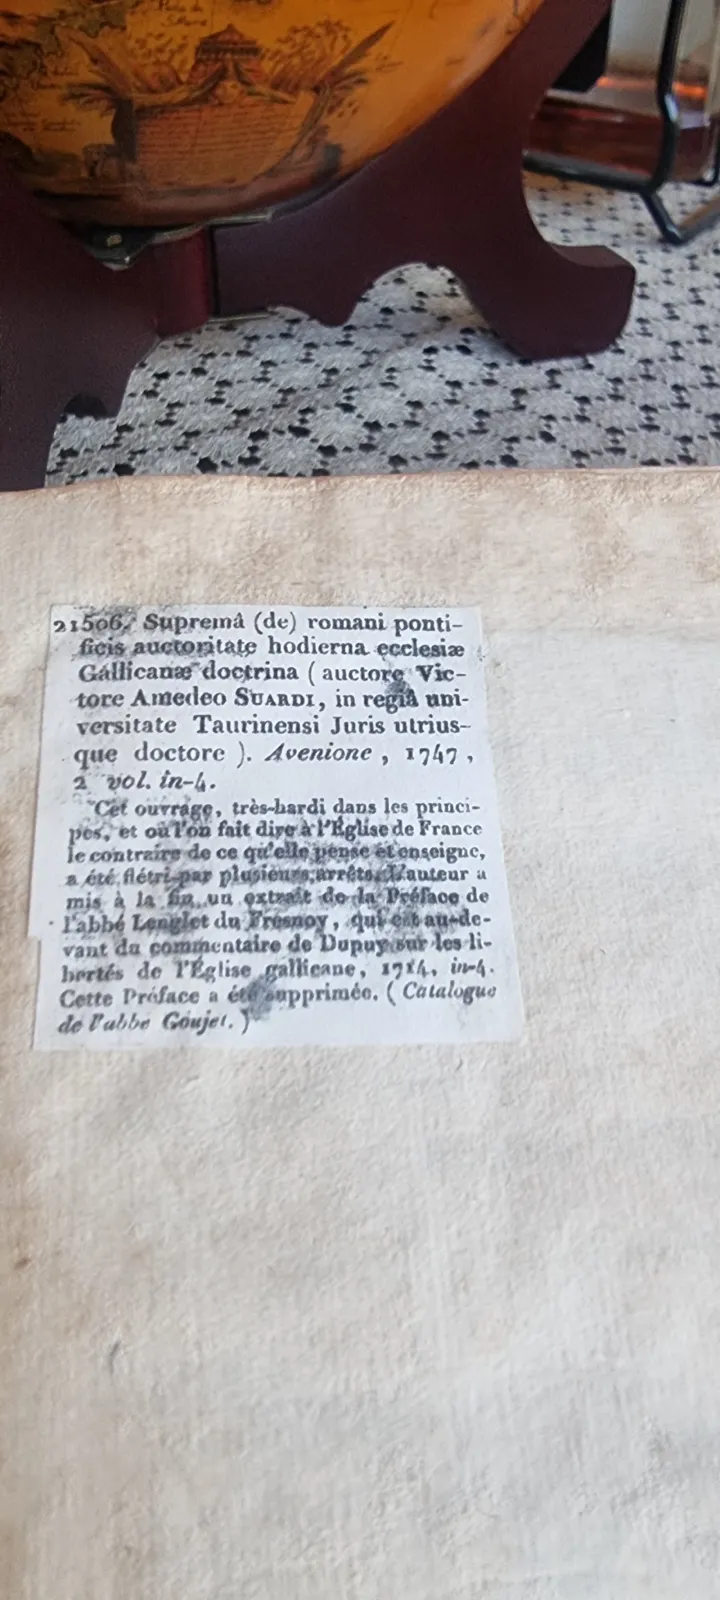 21506. Supremâ (de) romani ponti-
ficis auctoritate hodierna ecclesiæ
Gallicanæ doctrina ( auctore Vic-
tore Amedeo SUARDI, in regiâ uni-
versitate Taurinensi Juris utrius-
que doctore ). Avenione , 1747 ,
2 vol. in-4.
Cet ouvrage, très-hardi dans les princi-
pes, et où l'on fait dire à l'Église de France
le contraire de ce qu'elle pense et enseigne,
a été flétri par plusieurs arrêts. L'auteur a
mis à la fin un extrait de la Préface de
l'abbé Lenglet du Fresnoy, qui est au-de-
vant du commentaire de Dupuy sur les li-
bertés de l'Église gallicane, 1714, in-4.
Cette Préface a été supprimée. ( Catalogue
de l'abbé Goujet. )